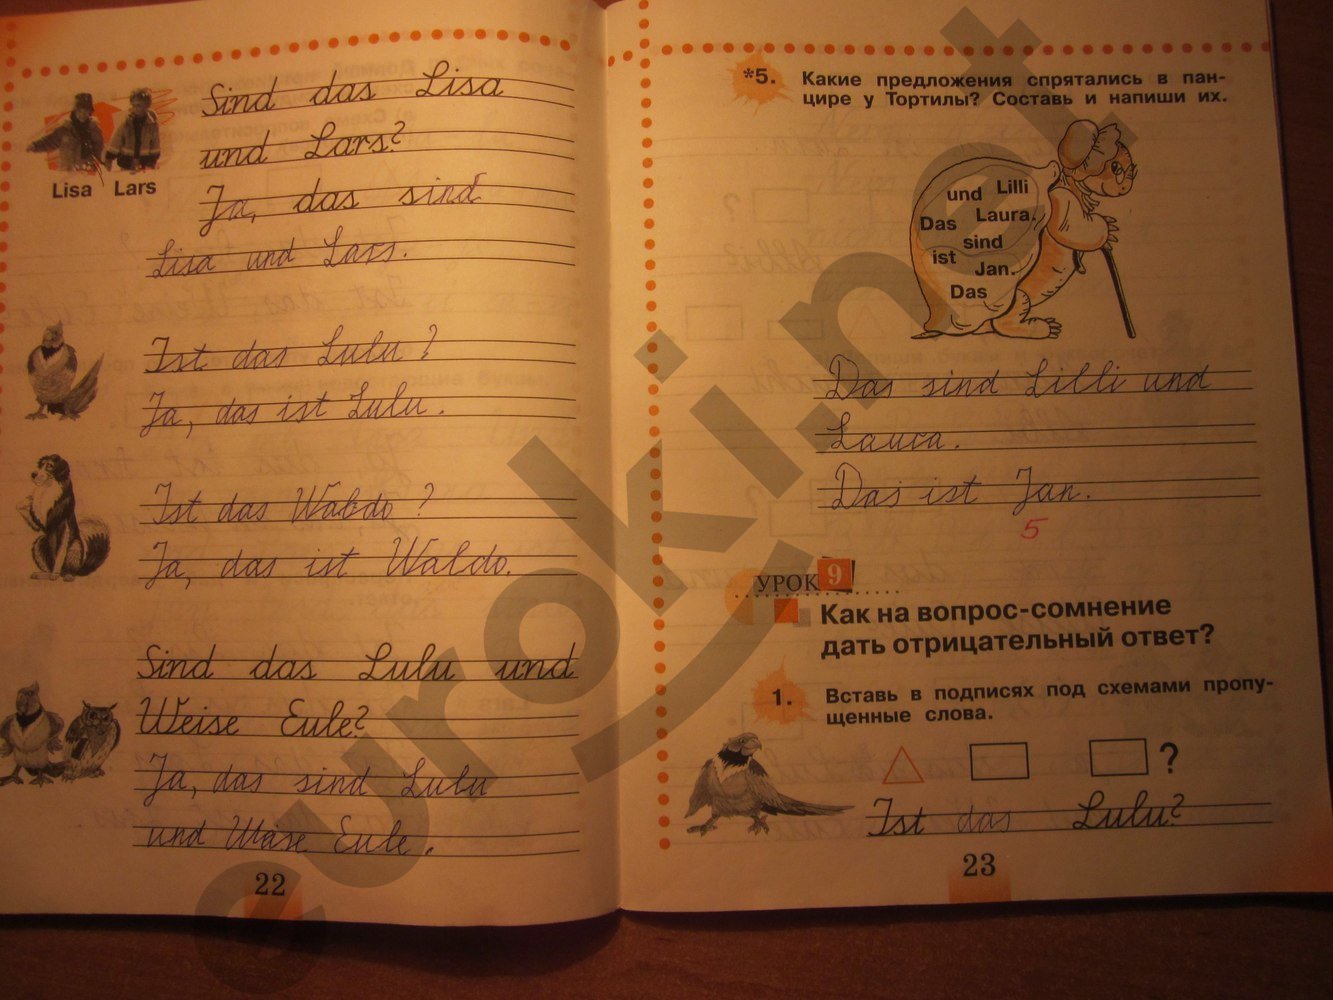 Sind das Lisa
und Lars?
Lisa Lars
Ja, das sind
Lisa und Lars.
Ist das Lulu?
Ja, das ist Lulu.
Ist das Waldo?
Ja, das ist Waldo.
Sind das Lulu und
Weise Eule?
Ja, das sind Lulu
und Wase Eule.
22
*5. Какие предложения спрятались в пан-
цире у Тортилы? Составь и напиши их.
und Lilli
Das Laura.
sind
ist
Jan.
Das
Das sind Lilli und
Laura.
Das ist Jan.
5
УРОК 9
Как на вопрос-сомнение
дать отрицательный ответ?
1. Вставь в подписях под схемами пропу-
щенные слова.
?
Ist das Lulu?
23
euroki.net